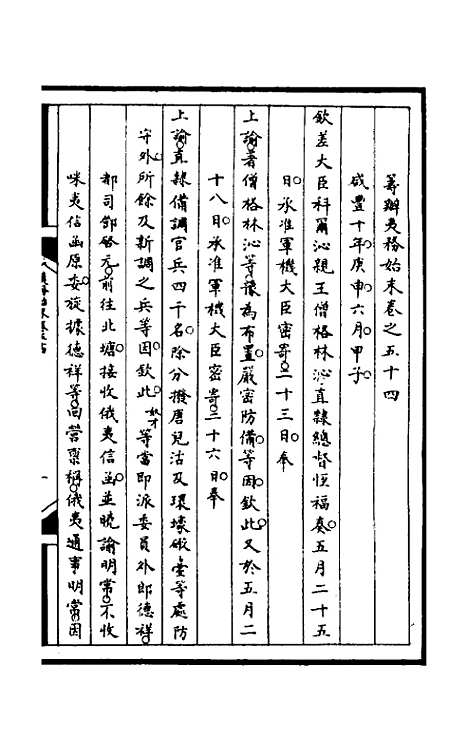 籌辦夷務始末卷之五十四
咸豐十年。庚申。六月。甲子。
欽差大臣科爾沁親王僧格林沁直隸總督恆福奏。五月二十五
日。承准軍機大臣密寄。二十三日。奉
上諭。著僧格林沁等。豫為布置。嚴密防備。等因。欽此。又於五月二
十八日。承准軍機大臣密寄。二十六日。奉
上諭。直隸備調官兵四千名。除分撥唐兒沽及環壕礮臺等處防
守外。所餘及新調之兵等因。欽此。奴才等當即派委員外郎德祥。
都司鄧啓元。前往北塘。接收俄夷信函。並曉諭明常。不收
咪夷信函原委。旋據德祥等。回營稟稱。俄夷通事明常。因